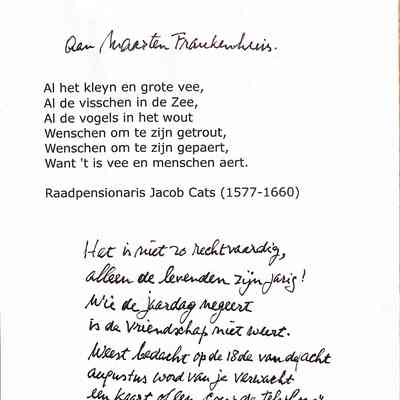 aan Maarten Frankenhuis.
Al het kleyn en grote vee,
Al de visschen in de Zee,
Al de vogels in het wout
Wenschen om te zijn getrout,
Wenschen om te zijn gepaert,
Want 't is vee en menschen aert.
Raadpensionaris Jacob Cats (1577-1660)
Het is niet zo rechtvaardig,
alleen de levenden zijn jarig!
Wie de jaardag negeert
is de vriendschap niet weert.
Weest bedacht op de 18de van de acht
augustus word van je verwacht
een kaart of een